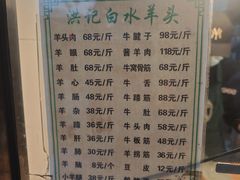 洪记白水羊头
羊头肉 68元/斤 牛腱子 98元/斤
羊眼 68元/斤 酱羊肉 118元/斤
羊肚 68元/斤 牛窝骨筋 68元/斤
羊心 45元/斤 牛舌 98元/斤
羊肠 48元/斤 羊蹄筋 88元/斤
羊杂 38元/斤 牛肚 68元/斤
羊肝 36元/斤 牛头肉 58元/斤
羊肝 36元/斤 牛板筋 48元/斤
羊肺 30元/斤 羊拐筋 36元/斤
羊脑 8元/个 豆皮 12元/斤
38元/斤